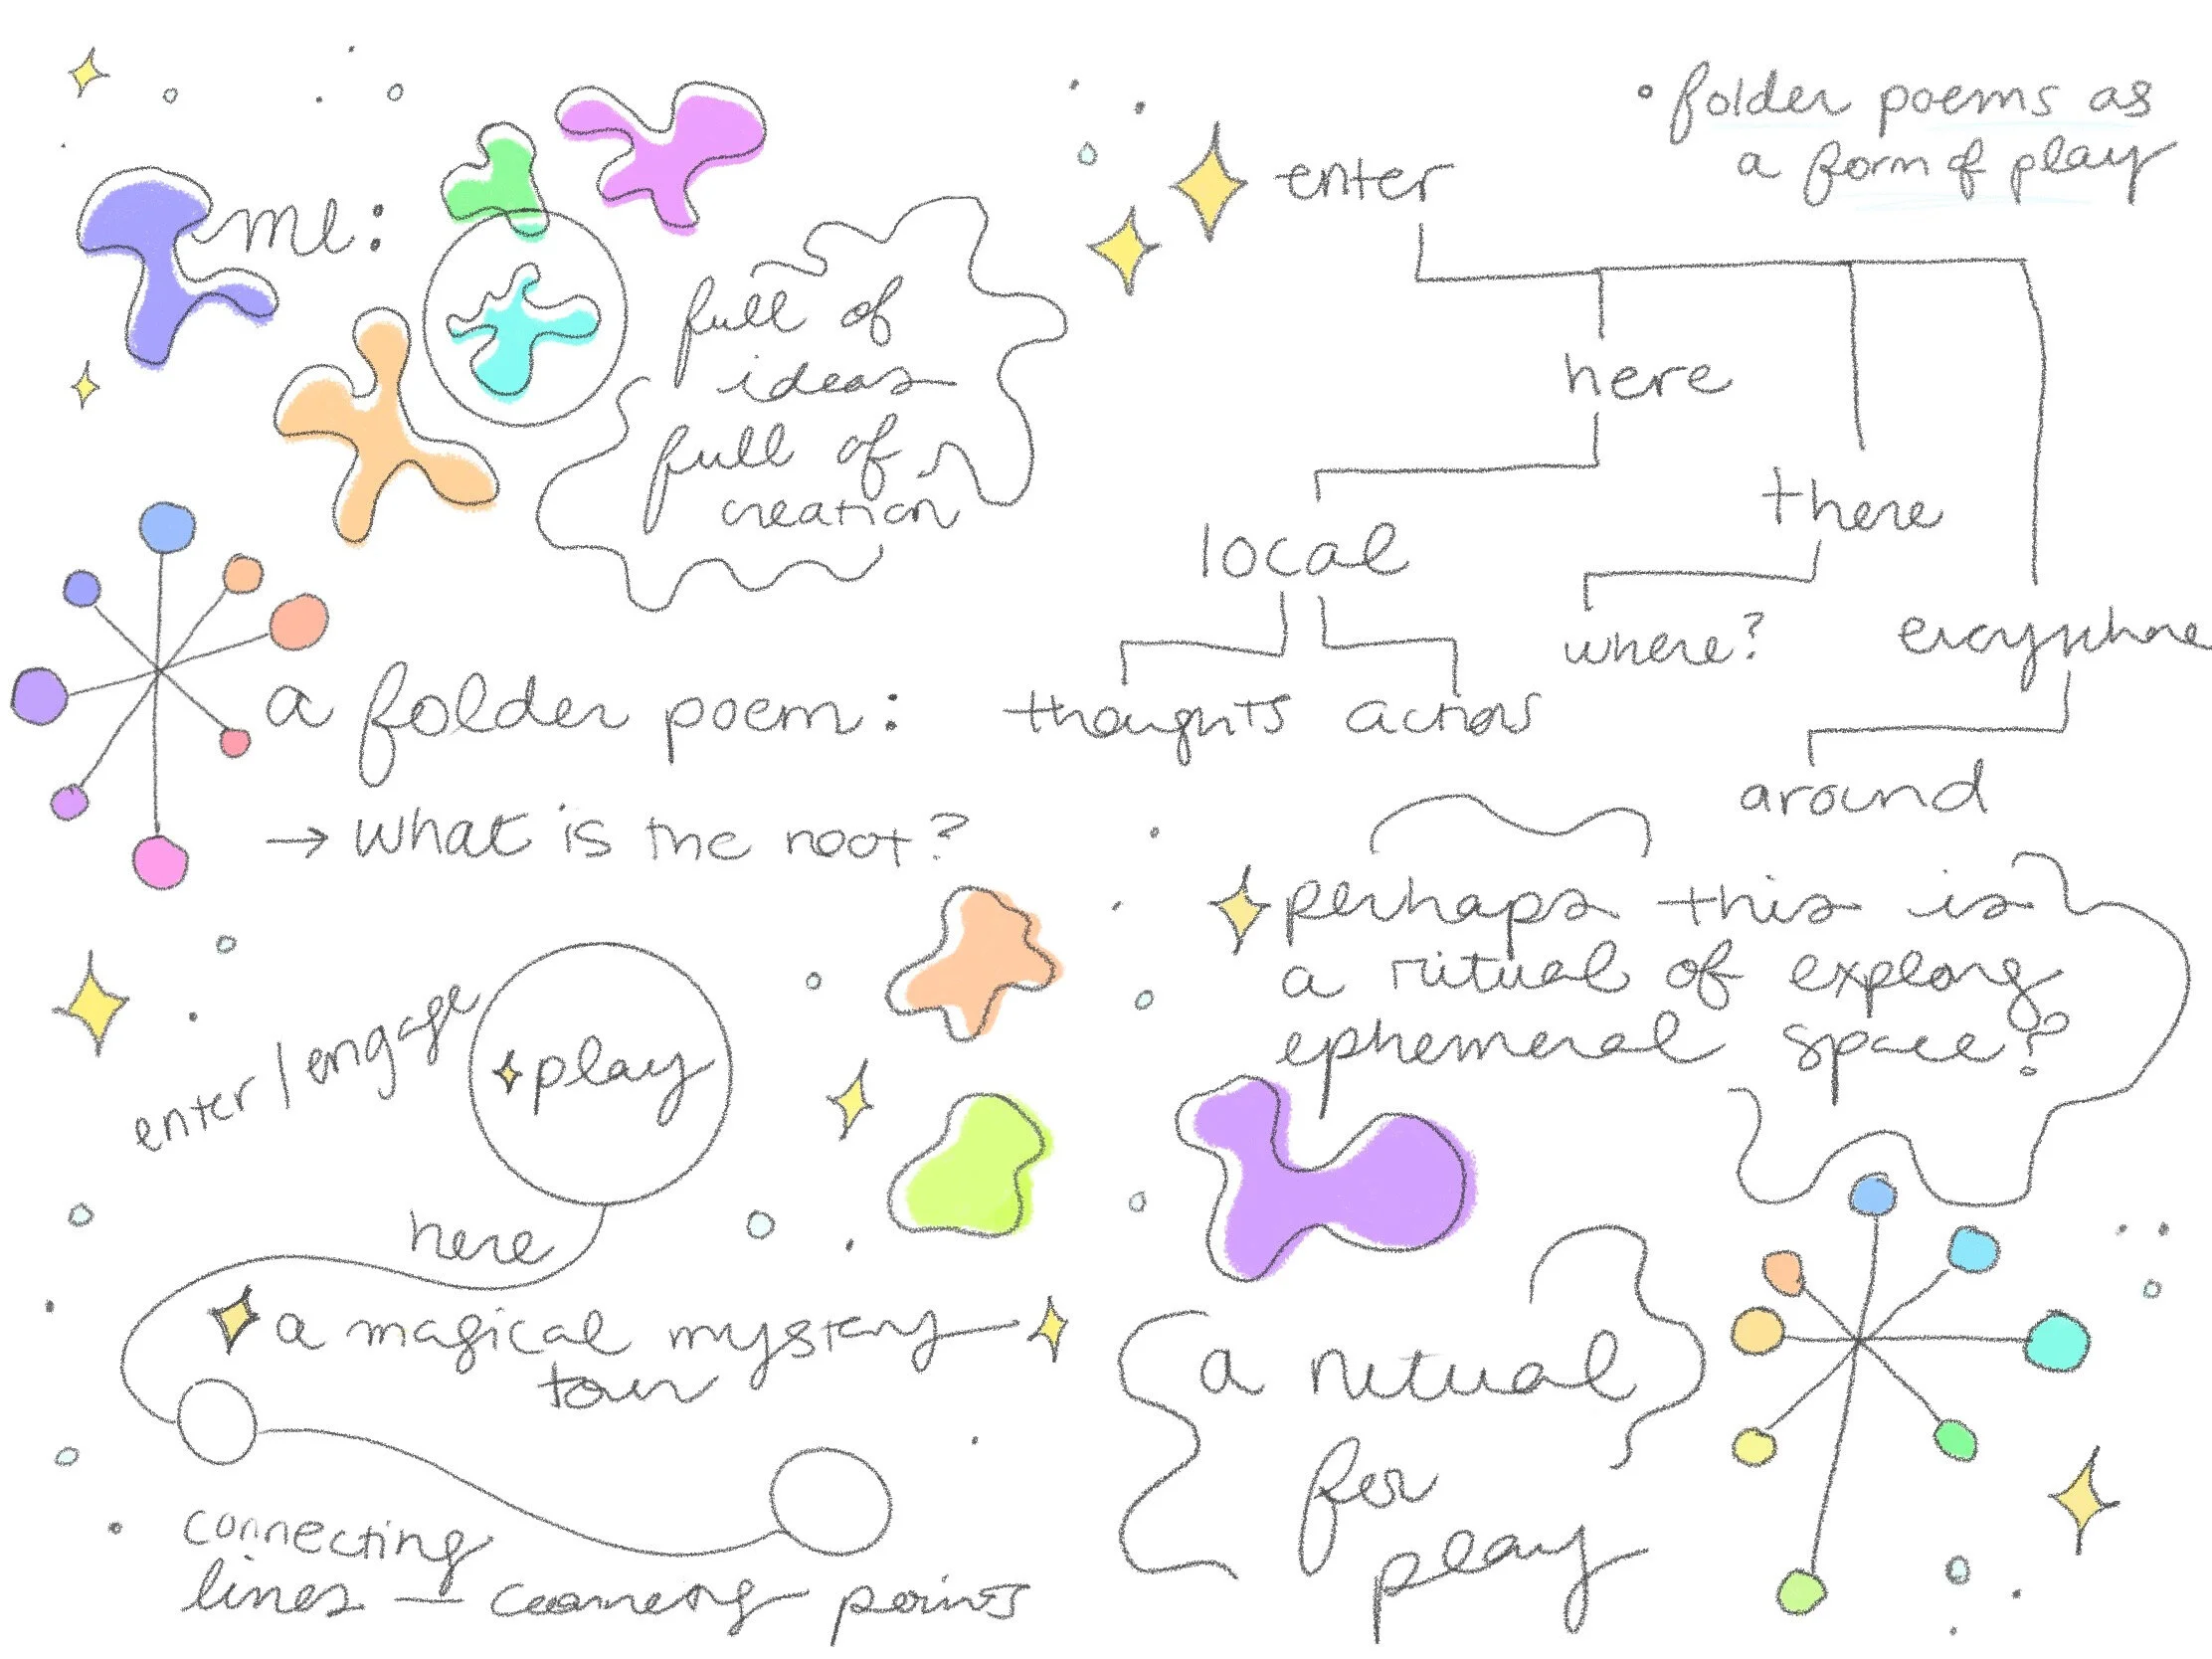 me:
full of
ideas
full of
creation
a folder poem:
→ what is the root?
enter/engage
play
here
a magical mystery
tour
connecting
lines — connecting points
• folder poems as
a form of play
enter
here
there
local
where?
everywhere
thoughts actions
around
perhaps this is
a ritual of exploring
ephemeral space?
a ritual
for
play